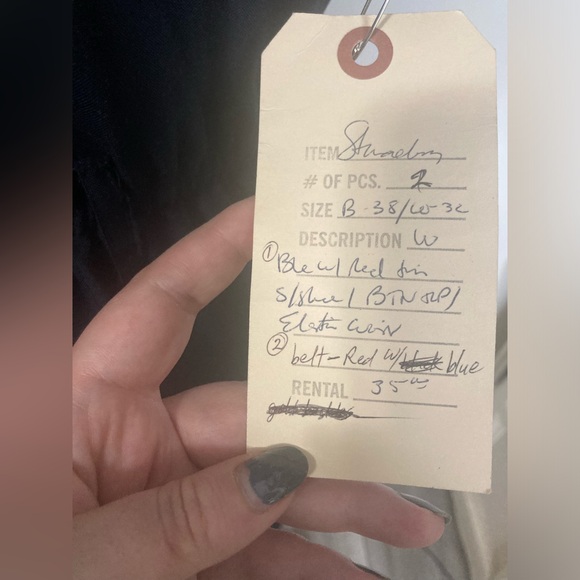 ITEM Stewardess
# OF PCS. 2
SIZE B-38/W-32
DESCRIPTION W
① Blue w/ Red trim
S/sleeve/ BTN UP/
Elastic waist
② belt-Red w/ blue
RENTAL 35⁰⁰